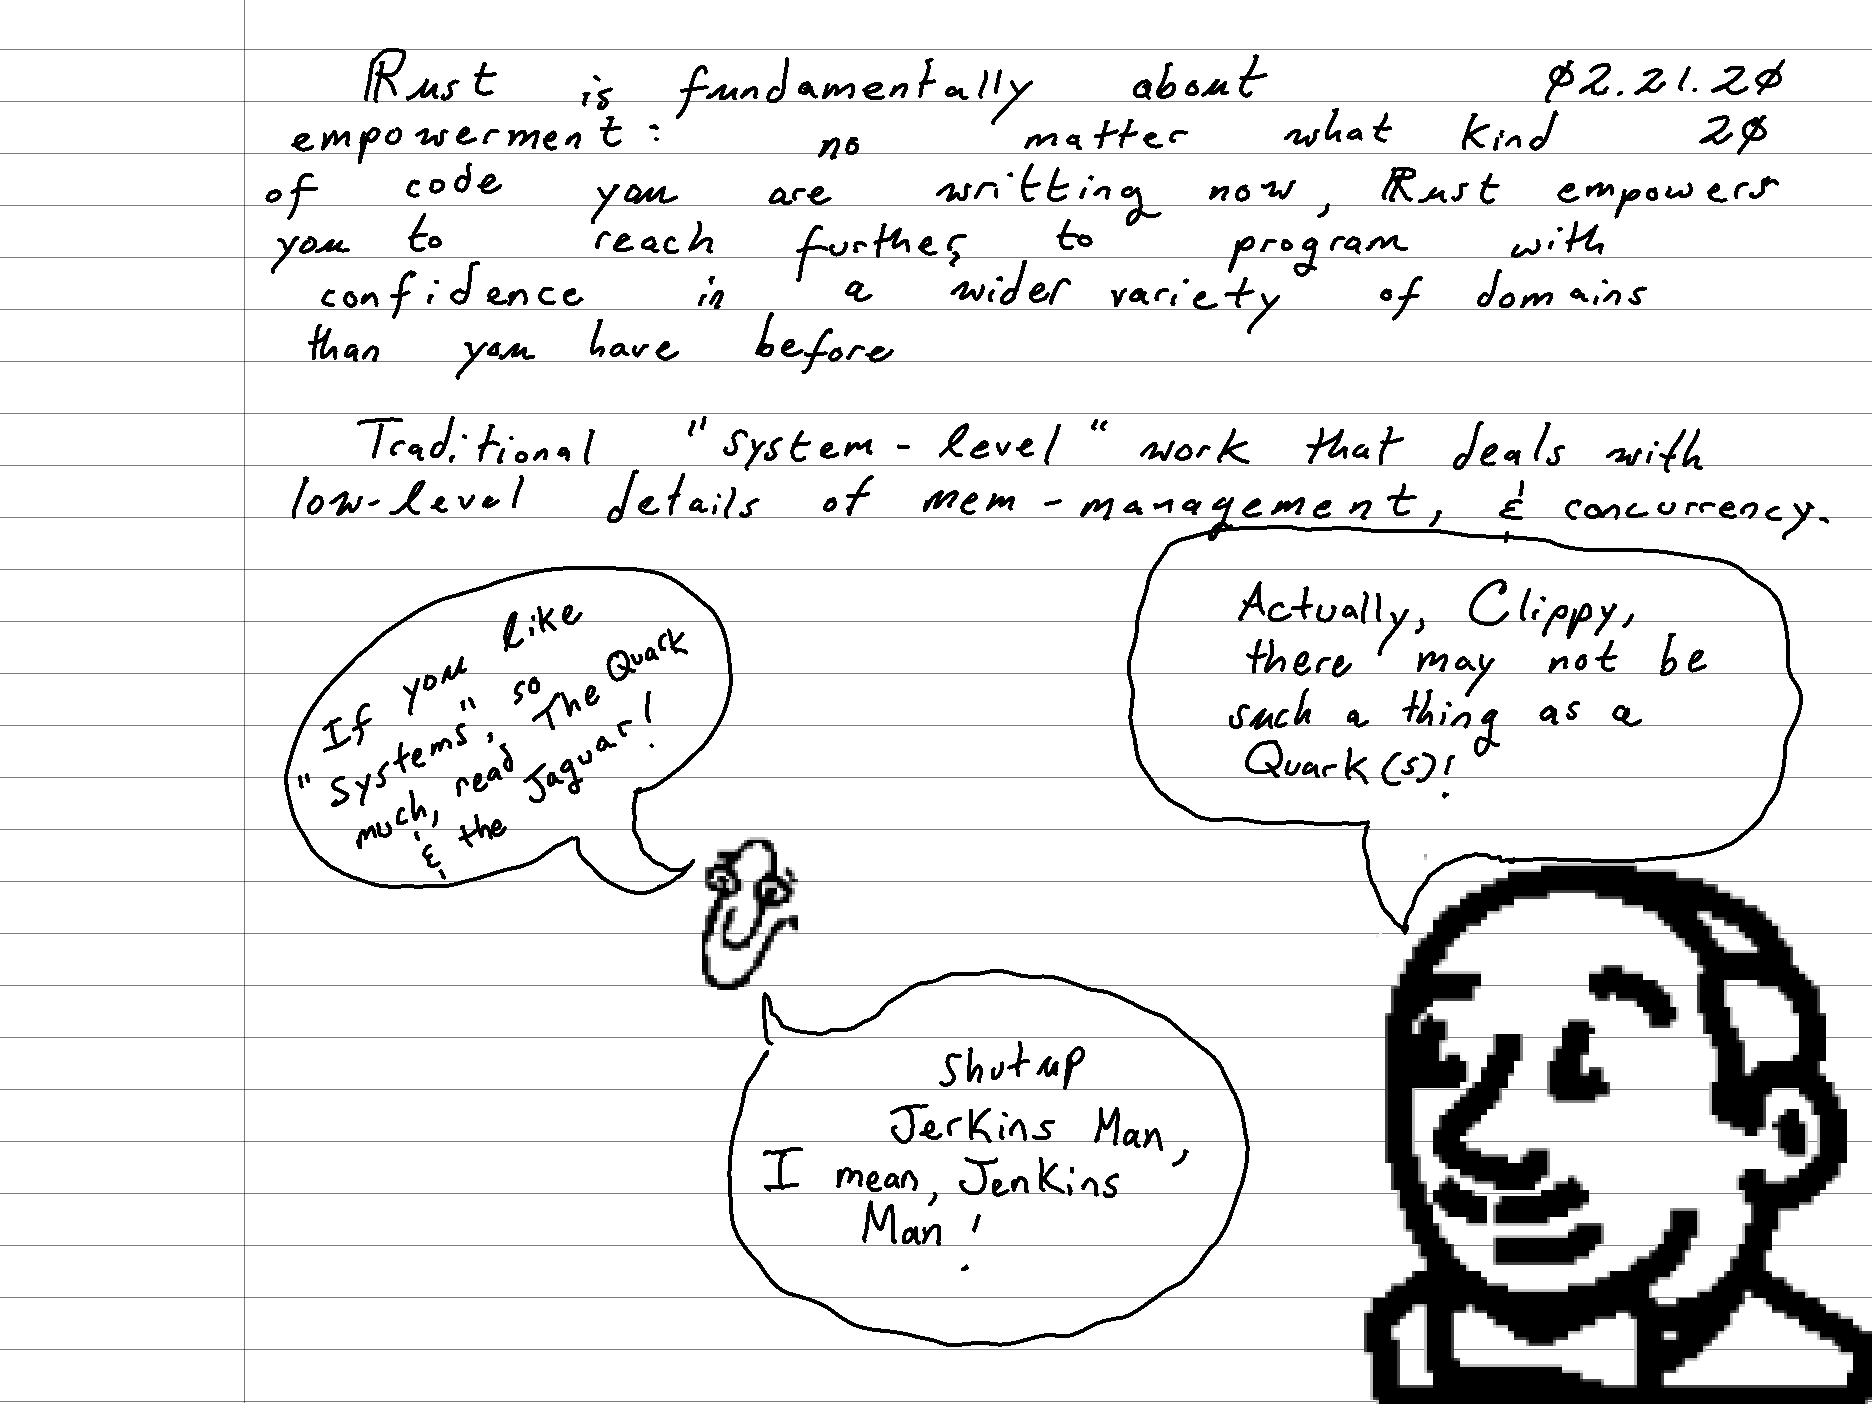 Rust is fundamentally about Ø2.21.2Ø
empowerment: no matter what kind 2Ø
of code you are writting now, Rust empowers
you to reach further, to program with
confidence in a wider variety of domains
than you have before
Traditional "system-level" work that deals with
low-level details of mem-management, & concurrency.
If you like
"Systems", so
much, read The Quark
& the Jaguar!
Actually, Clippy,
there may not be
such a thing as a
Quark(s)!
Shut up
Jerkins Man,
I mean, Jenkins
Man!